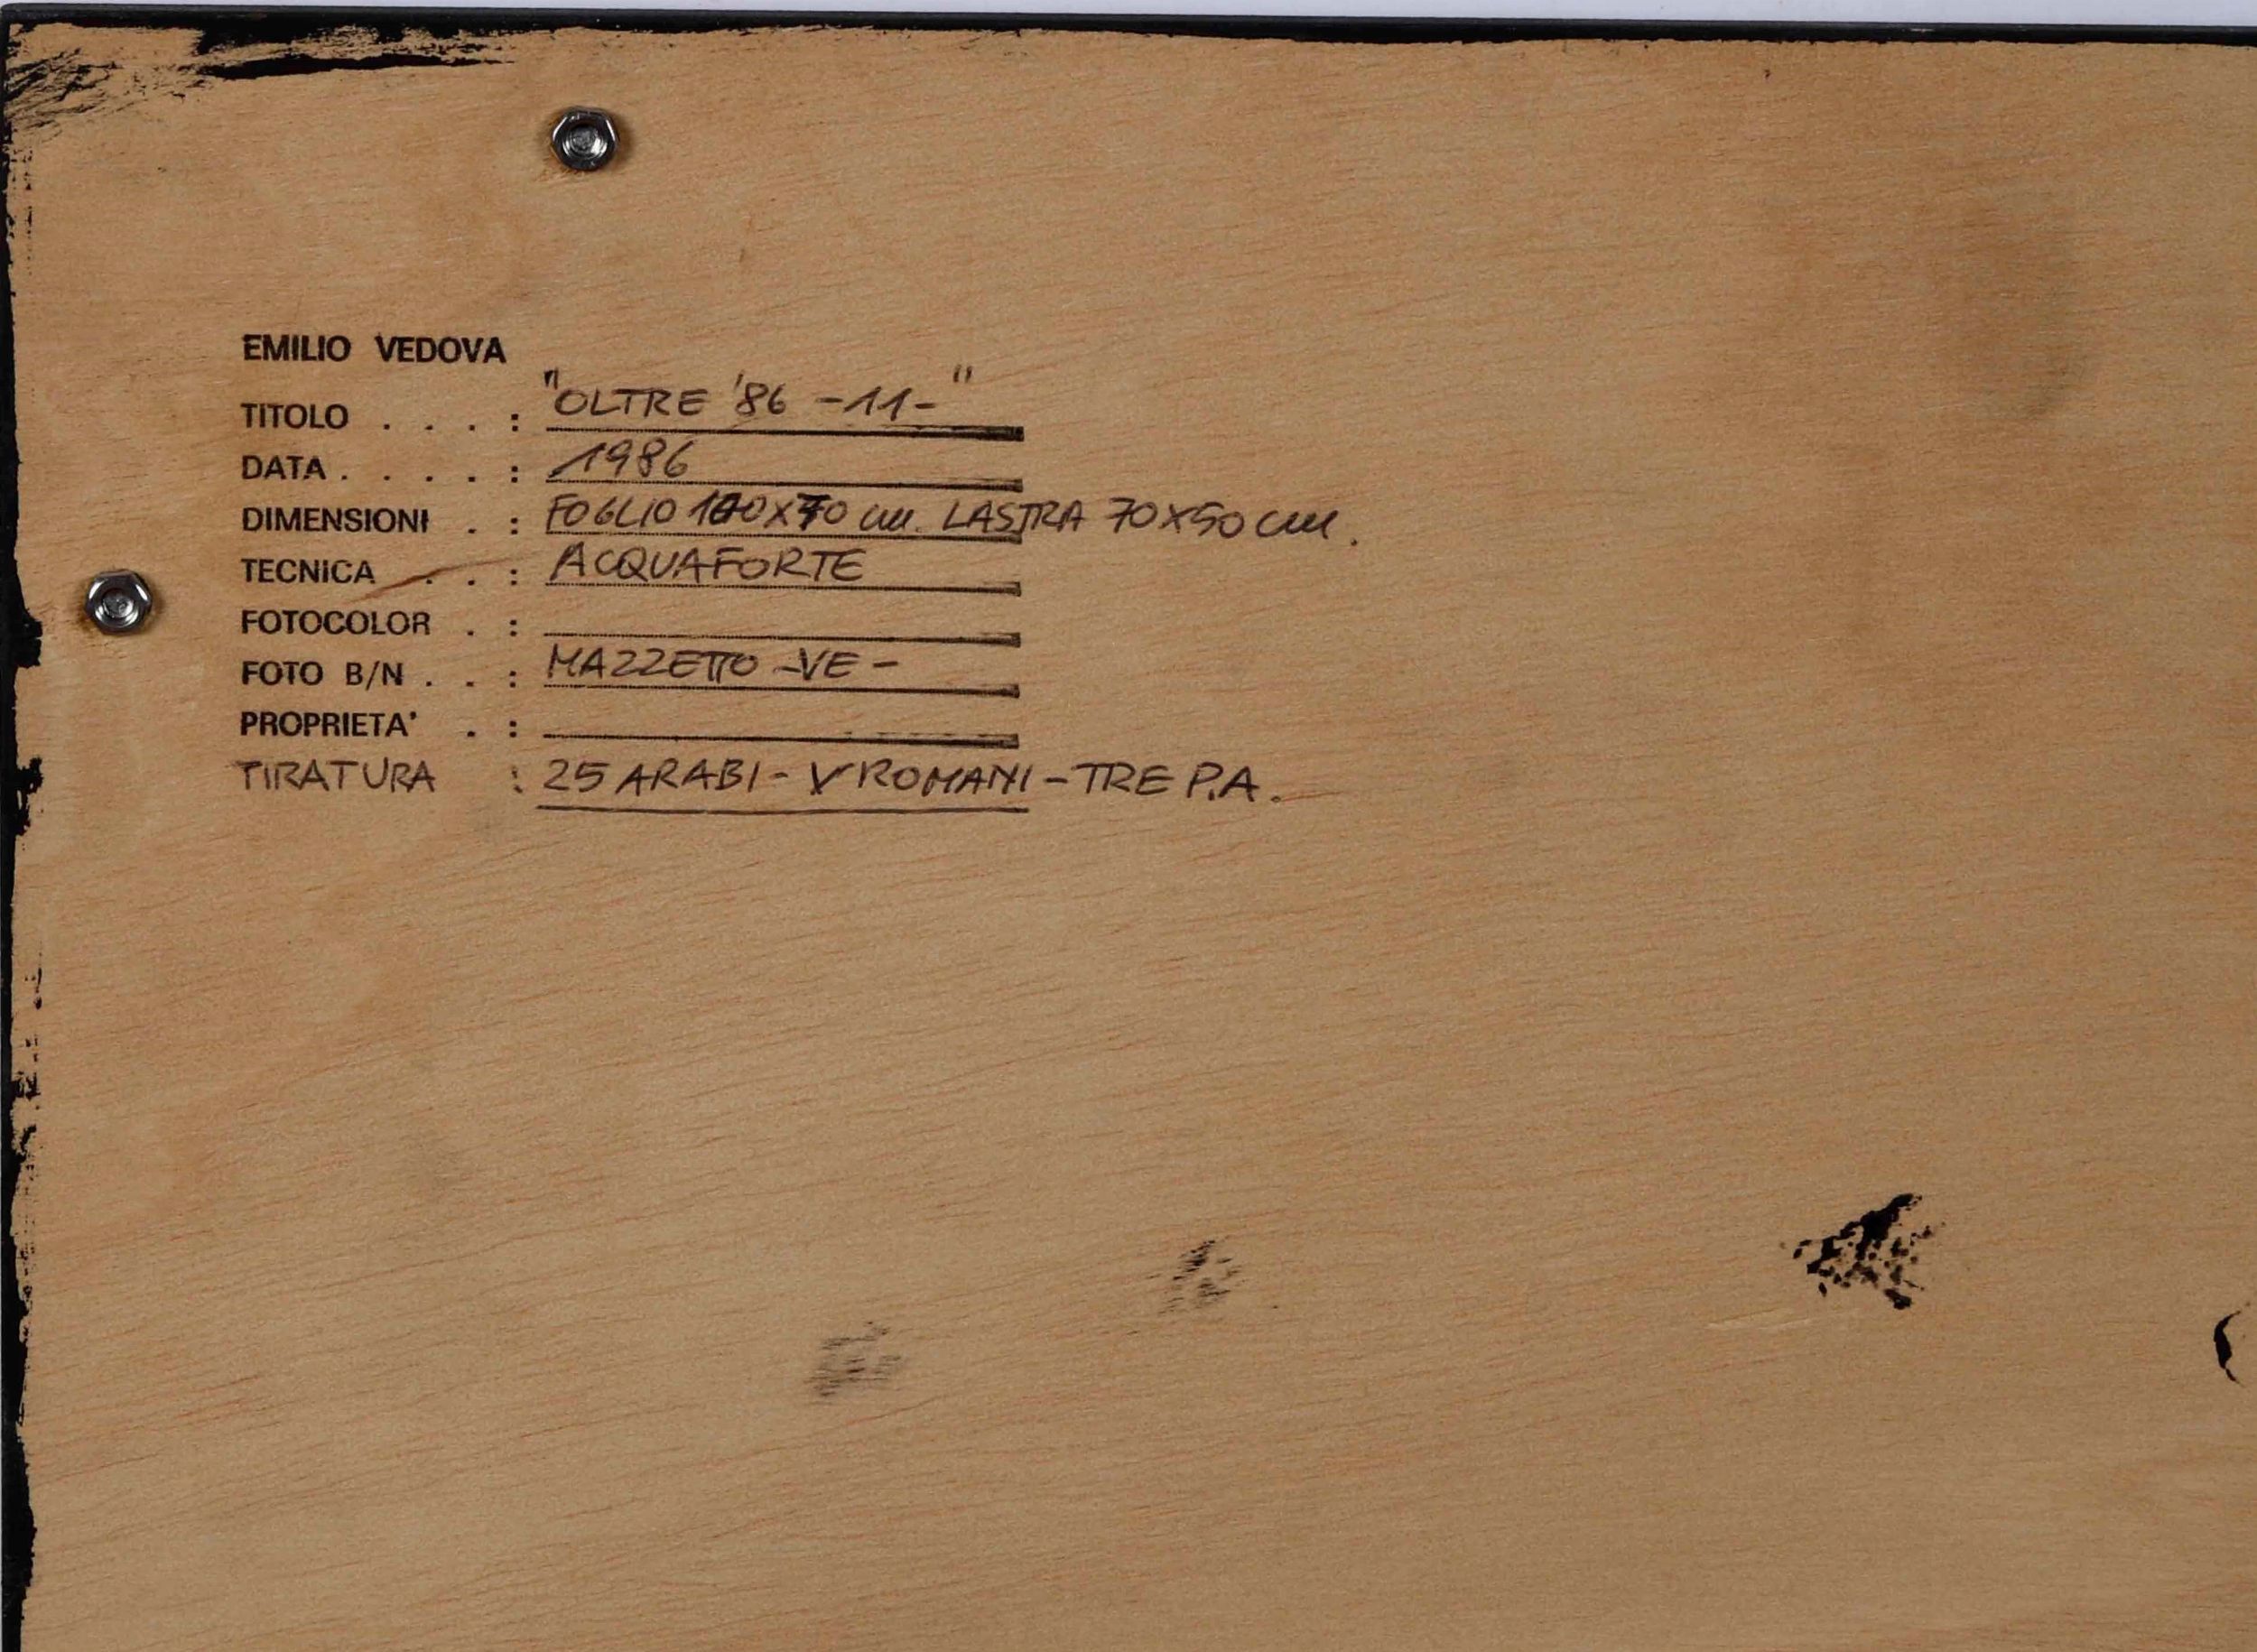 EMILIO VEDOVA
TITOLO . . . : "OLTRE '86 -11-"
DATA . . . . : 1986
DIMENSIONI . : FOGLIO 100X70 cm. LASTRA 70X50 cm.
TECNICA . . : ACQUAFORTE
FOTOCOLOR . :
FOTO B/N . . : MAZZETTO -VE-
PROPRIETA' . :
TIRATURA : 25 ARABI - V ROMANI - TRE P.A.